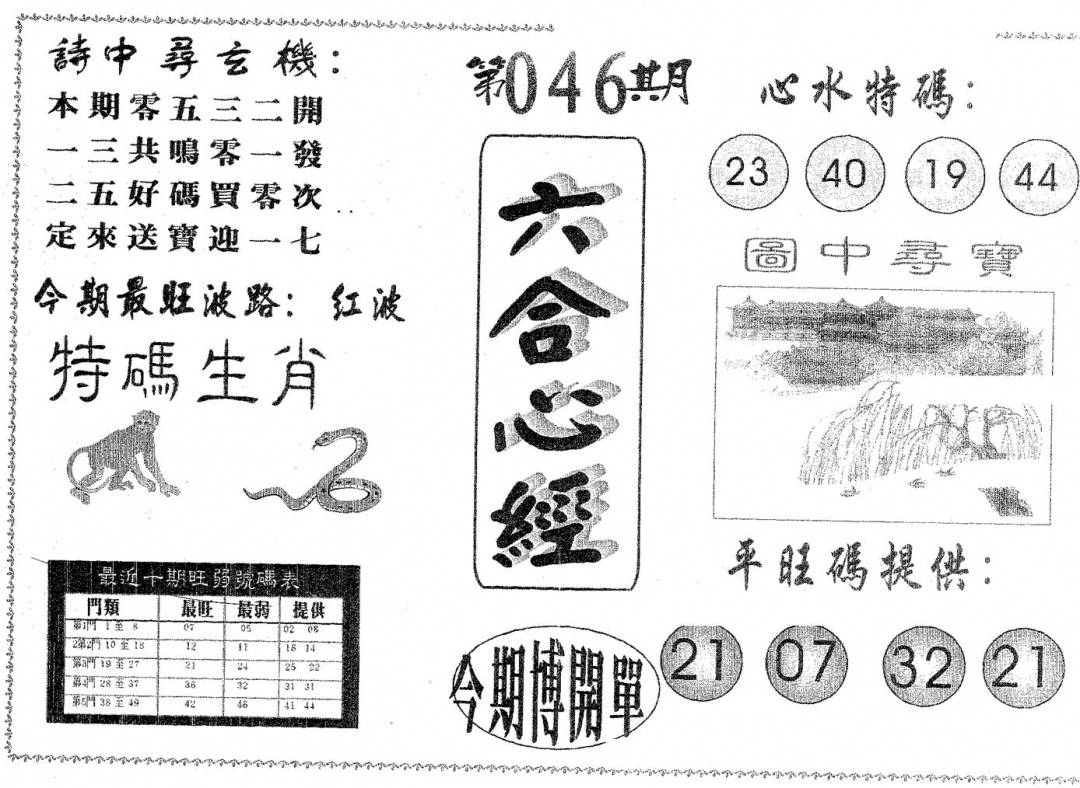 詩中尋玄機：
本期零五三二開
一三共鳴零一發
二五好碼買零次
定來送寶迎一七
今期最旺波路：紅波
特碼生肖
最近十期旺弱號碼表
門類 最旺 最弱 提供
第1門 1 至 8 07 05 02 08
第2門 10 至 18 12 11 18 14
第3門 19 至 27 21 24 25 22
第4門 28 至 37 36 32 31 31
第5門 38 至 49 42 46 41 44
第046期
六合心經
今期博開單
心水特碼：
23 40 19 44
圖中尋寶
平旺碼提供：
21 07 32 21